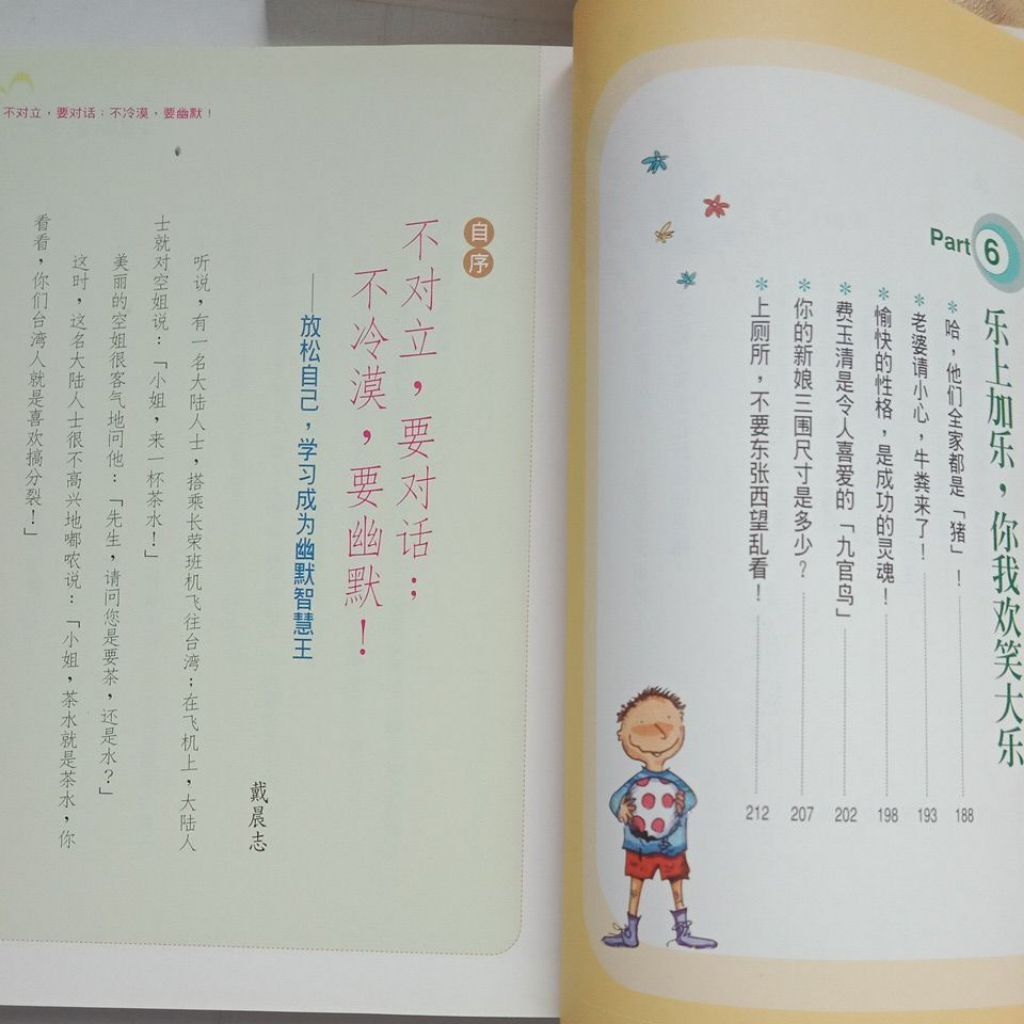 Part 6
乐上加乐，你我欢笑大乐
*哈，他们全家都是「猪」！ 188
*老婆请小心，牛粪来了！ 193
*愉快的性格，是成功的灵魂！ 198
*费玉清是令人喜爱的「九官鸟」 202
*你的新娘三围尺寸是多少？ 207
*上厕所，不要东张西望乱看！ 212
不对立，要对话；不冷漠，要幽默！
自序
不对立，要对话；
不冷漠，要幽默！
——放松自己，学习成为幽默智慧王
戴晨志
听说，有一名大陆人士，搭乘长荣班机飞往台湾；在飞机上，大陆人
士就对空姐说：「小姐，来一杯茶水！」
美丽的空姐很客气地问他：「先生，请问您是要茶，还是水？」
这时，这名大陆人士很不高兴地嘟哝说：「小姐，茶水就是茶水，你
看看，你们台湾人就是喜欢搞分裂！」